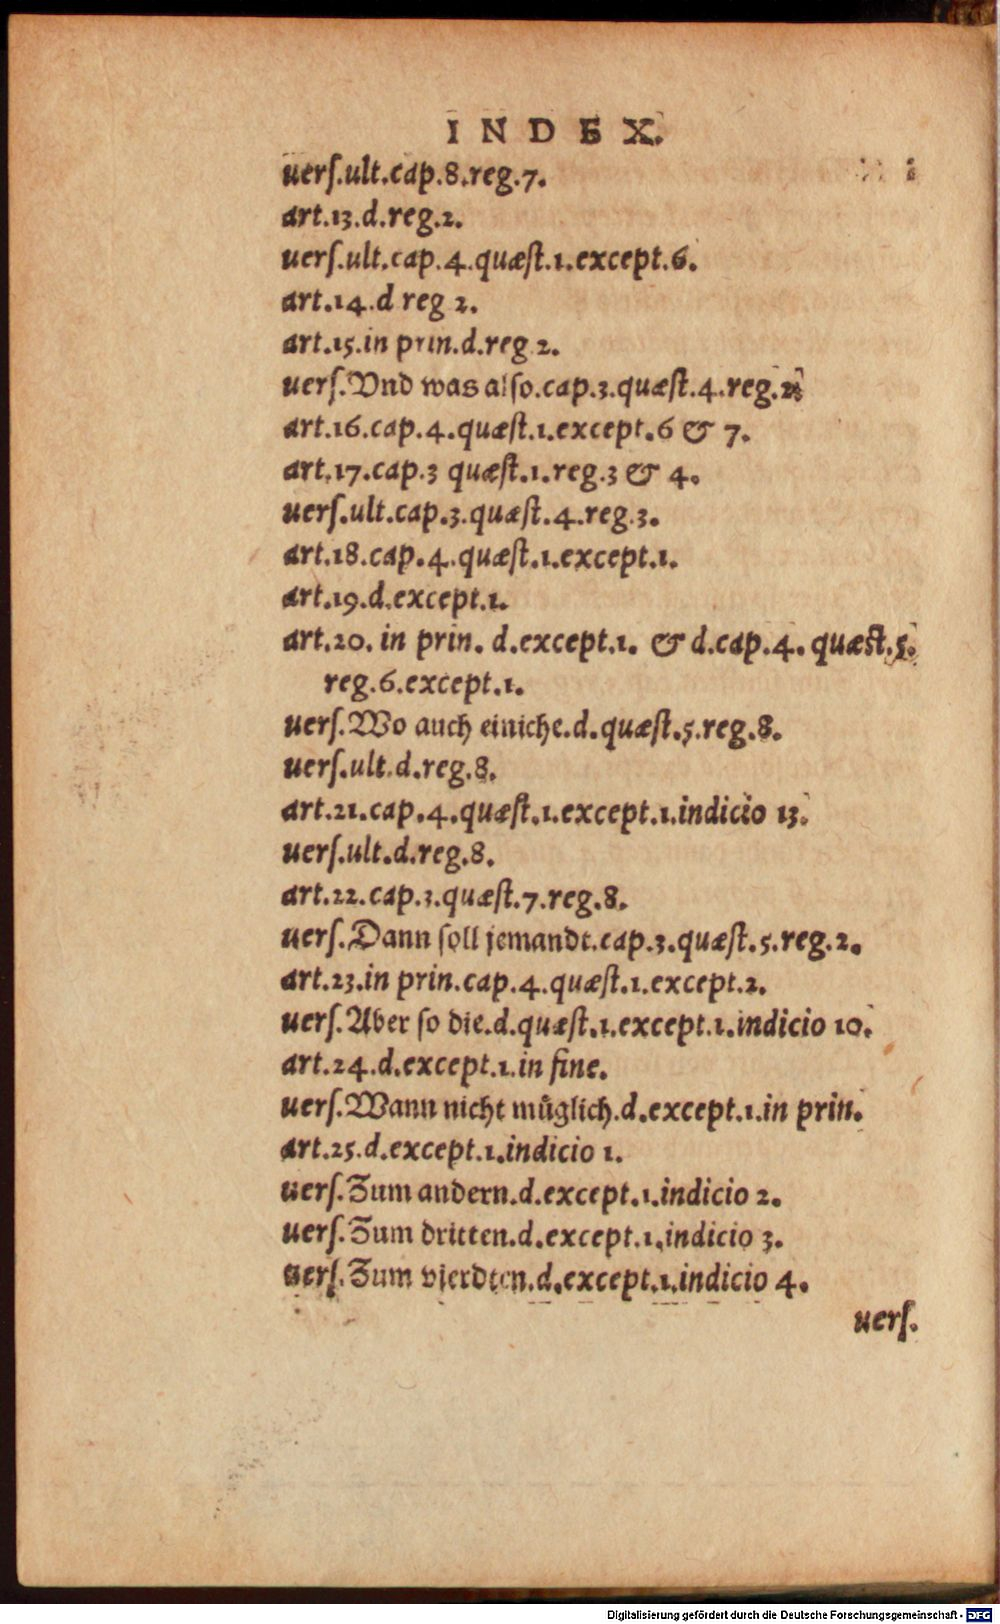 INDEX.
uerſ.ult.cap.8.reg.7.
art.13.d.reg.2.
uerſ.ult.cap.4.quæſt.1.except.6.
art.14.d reg 2.
art.15.in prin.d.reg 2.
uerſ.Vnd was alſo.cap.3.quæſt.4.reg.2.
art.16.cap.4.quæſt.1.except.6 & 7.
art.17.cap.3 quæſt.1.reg.3 & 4.
uerſ.ult.cap.3.quæſt.4.reg.3.
art.18.cap.4.quæſt.1.except.1.
art.19.d.except.1.
art.20. in prin. d.except.1. & d.cap.4. quæſt.5.
reg.6.except.1.
uerſ.Wo auch einiche.d.quæſt.5.reg.8.
uerſ.ult.d.reg.8.
art.21.cap.4.quæſt.1.except.1.indicio 13.
uerſ.ult.d.reg.8.
art.22.cap.3.quæſt.7.reg.8.
uerſ.Dann ſoll jemandt.cap.3.quæſt.5.reg.2.
art.23.in prin.cap.4.quæſt.1.except.2.
uerſ.Aber ſo die.d.quæſt.1.except.1.indicio 10.
art.24.d.except.1.in fine.
uerſ.Wann nicht müglich.d.except.1.in prin.
art.25.d.except.1.indicio 1.
uerſ.Zum andern.d.except.1.indicio 2.
uerſ.Zum dritten.d.except.1.indicio 3.
uerſ.Zum vierdten.d.except.1.indicio 4.
uerſ.
Digitalisierung gefördert durch die Deutsche Forschungsgemeinschaft - DFG